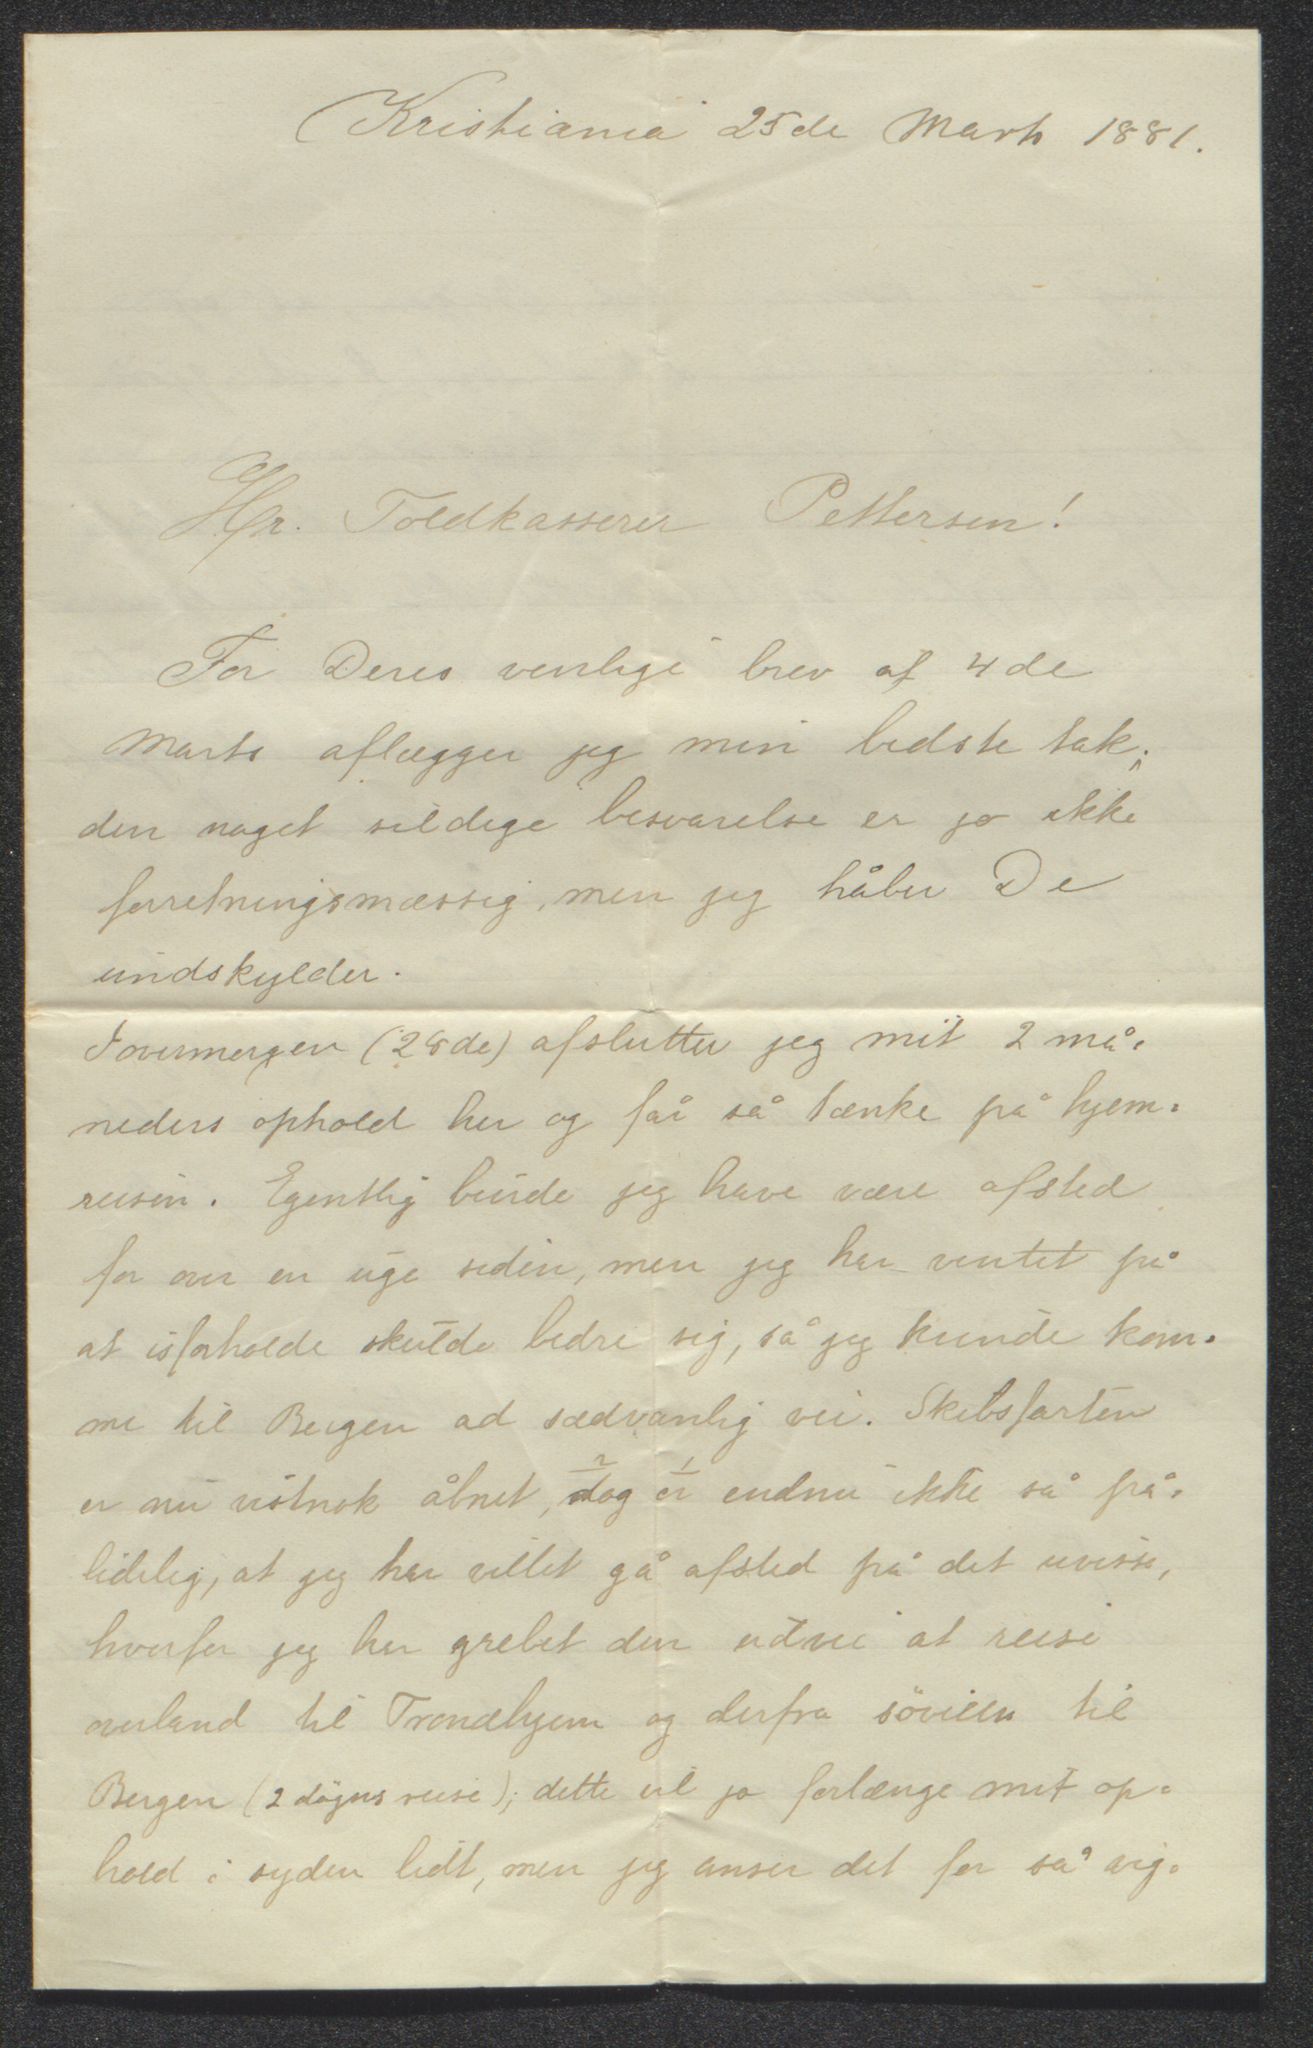 Kristiania 25de Marts 1881.
Hr. Toldkasserer Pettersen!
For Deres venlige brev af 4de
Marts aflægger jeg min bedste tak;
den noget sildige besvarelse er jo ikke
forretningsmæssig, men jeg håber De
undskylder.
Iovermorgen (28de) afslutter jeg mit 2 må-
neders ophold her og får så tænke på hjem-
reisen. Egentlig burde jeg have være afsted
for over en uge siden, men jeg har ventet på
at isforholde skulde bedre sig, så jeg kunde kom-
me til Bergen ad sædvanlig vei. Skibsfarten
er nu vistnok åbnet, dog er endnu ikke så på-
lidelig, at jeg har villet gå afsted på det uvisse,
hvorfor jeg har grebet den udvei at reise
overland til Trondhjem og derfra søveien til
Bergen (2 døgns reise); dette vil jo forlænge mit op-
hold i syden lidt, men jeg anser det for så vig-